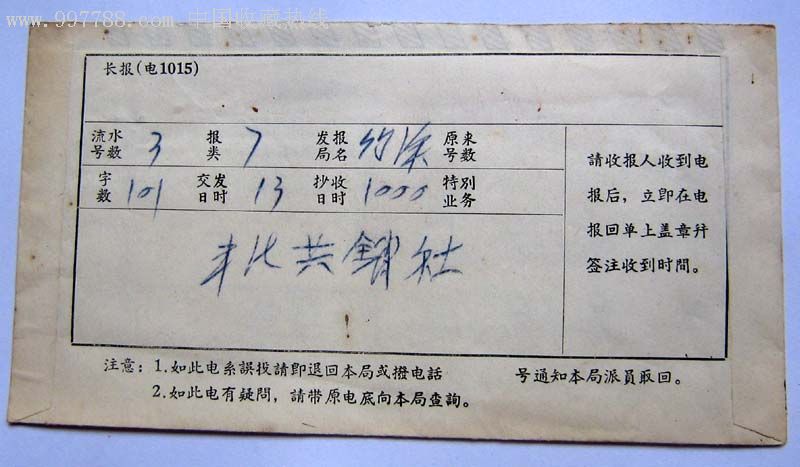 www.997788.com 中国收藏热线
长报(电1015)
流水号数 3 报类 7 发报局名 原来号数
字数 101 交发日时 13 抄收日时 1000 特别业务
共銷社
請收报人收到电
报后，立即在电
报回单上盖章幷
签注收到时間。
注意：1.如此电系誤投請即退回本局或撥电話 号通知本局派員取回。
2.如此电有疑問，請带原电底向本局查詢。